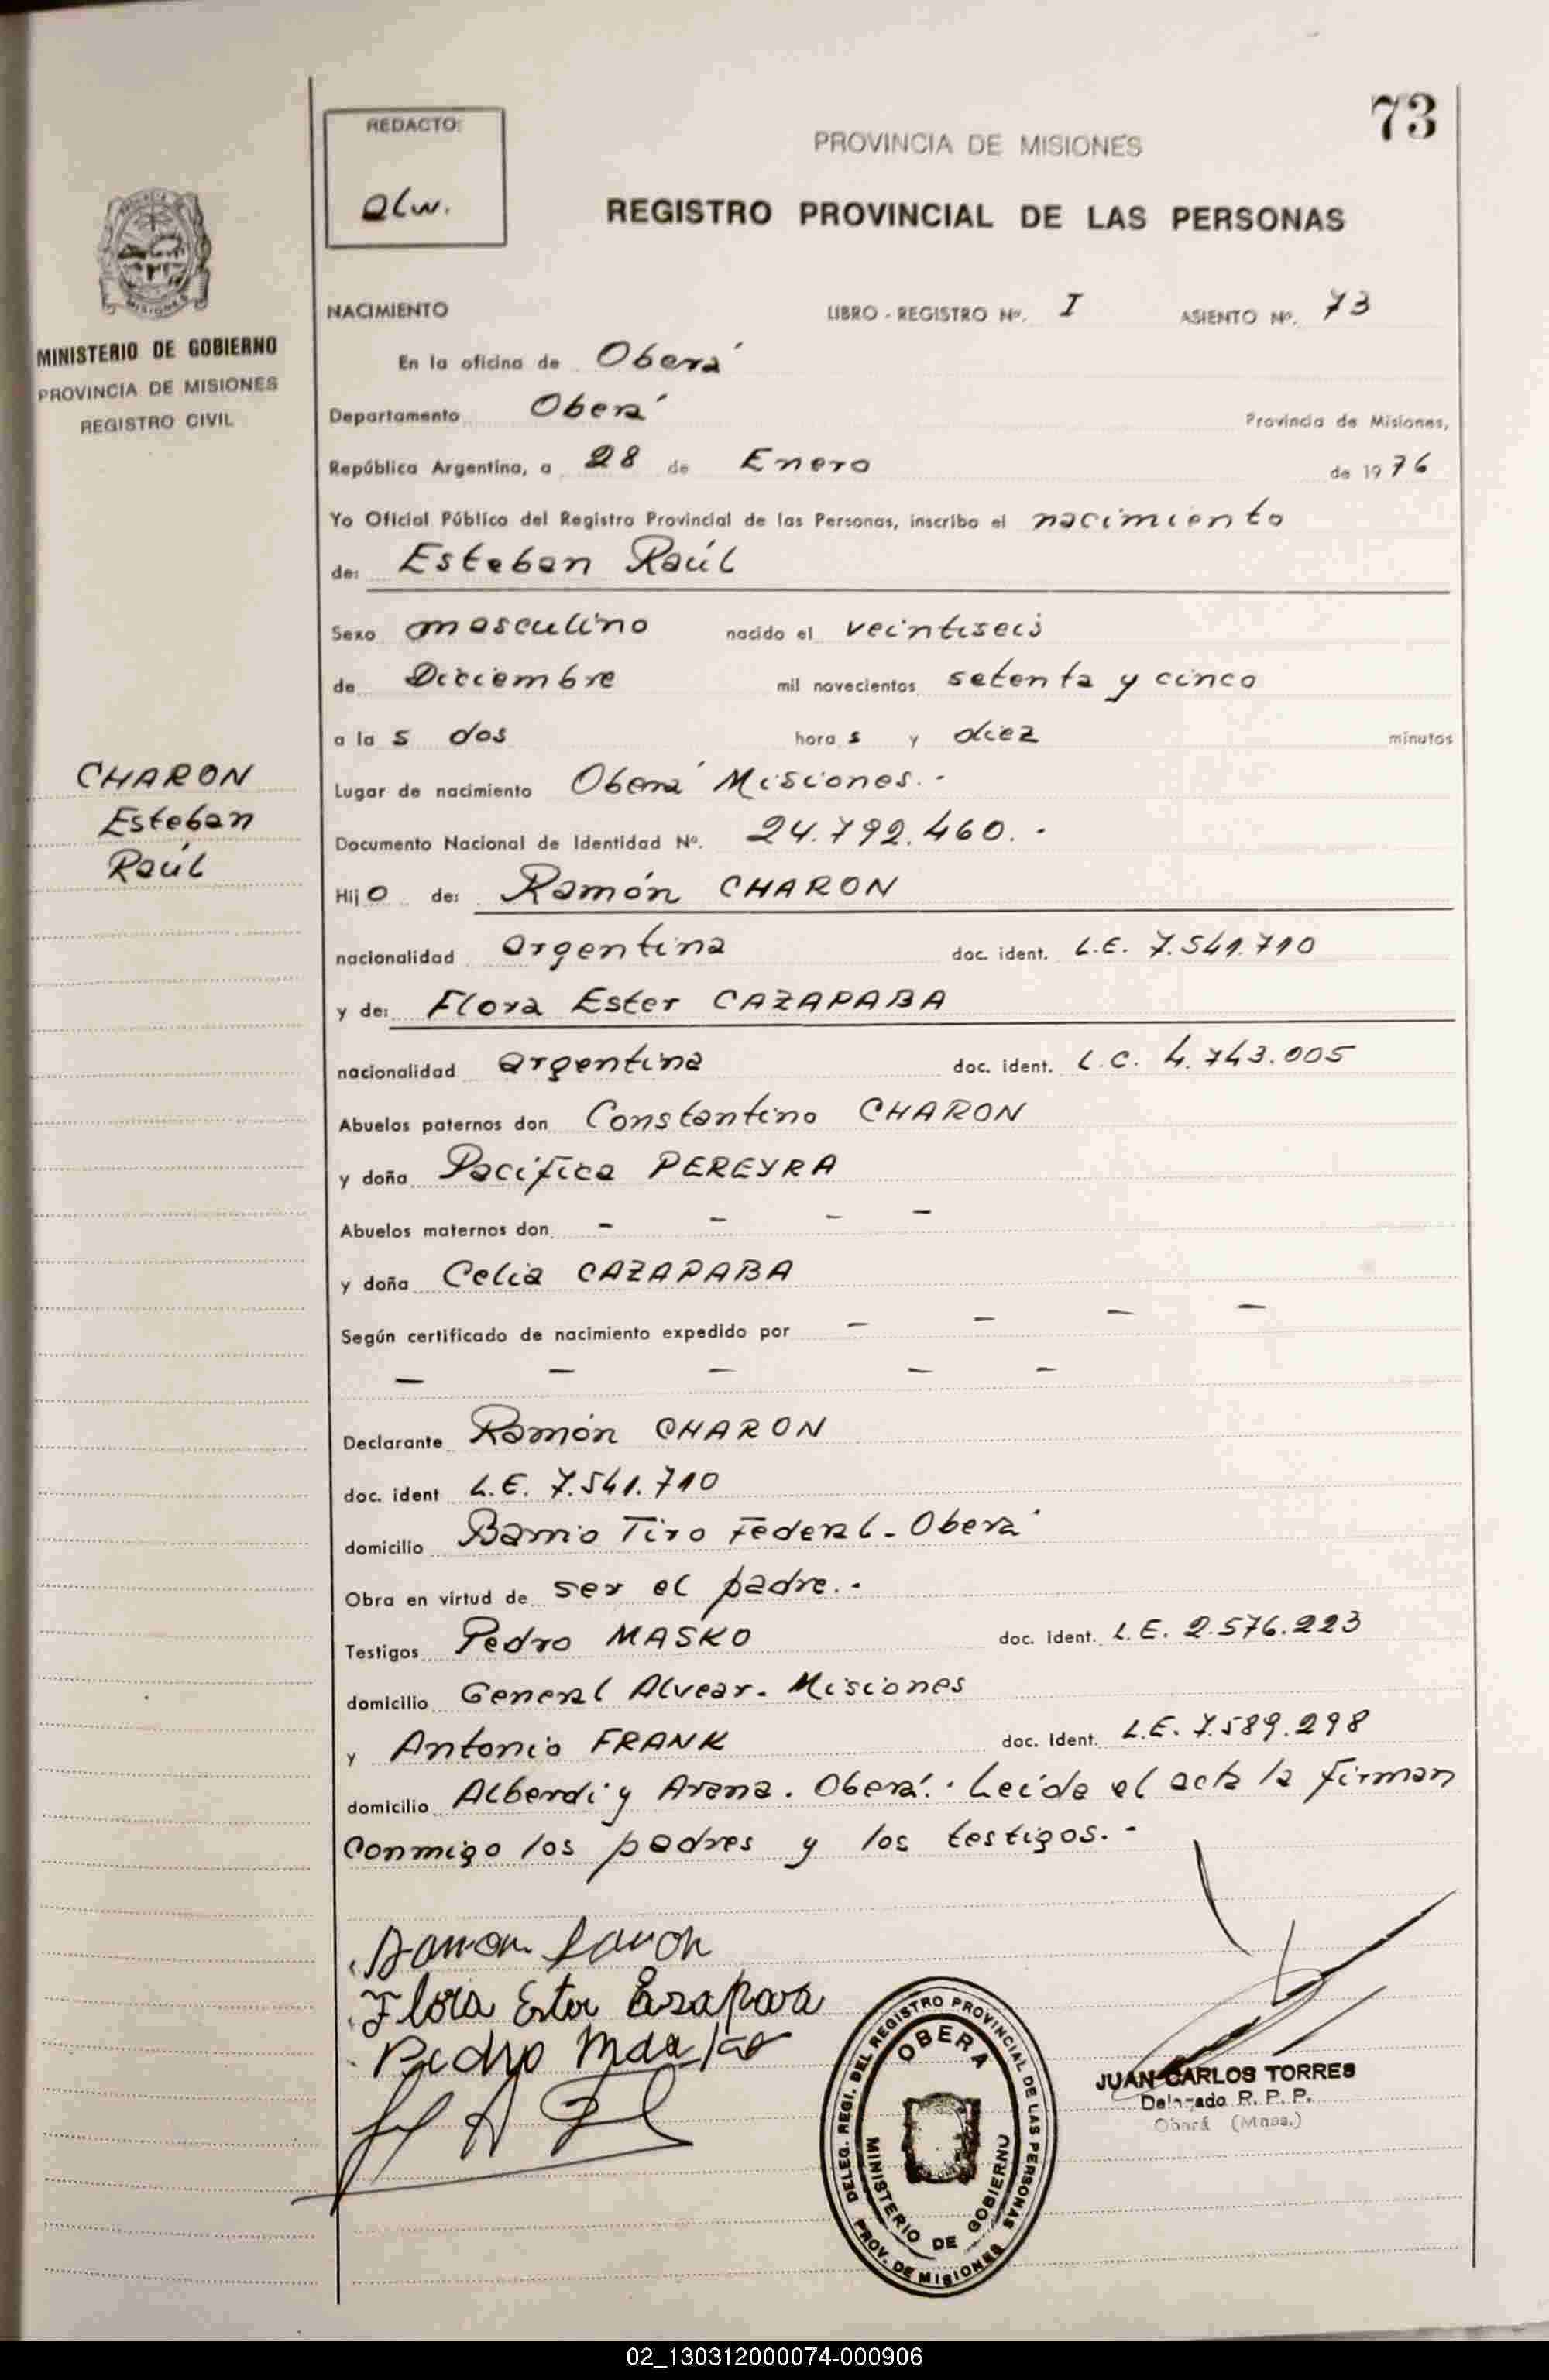 73
REDACTO:
alw.
PROVINCIA DE MISIONES
REGISTRO PROVINCIAL DE LAS PERSONAS
MINISTERIO DE GOBIERNO
PROVINCIA DE MISIONES
REGISTRO CIVIL
NACIMIENTO LIBRO - REGISTRO Nº. I ASIENTO Nº. 73
En la oficina de Oberá
Departamento Oberá Provincia de Misiones,
República Argentina, a 28 de Enero de 1976
Yo Oficial Público del Registro Provincial de las Personas, inscribo el nacimiento
de: Esteban Raúl
Sexo masculino nacido el veintiseis
de Diciembre mil novecientos setenta y cinco
a las dos horas y diez minutos
CHARON
Esteban
Raúl
Lugar de nacimiento Oberá Misiones.-
Documento Nacional de Identidad Nº. 24.792.460.-
Hijo de: Ramón CHARON
nacionalidad argentina doc. ident. L.E. 7.541.710
y de: Flora Ester CAZAPABA
nacionalidad argentina doc. ident. L.C. 4.743.005
Abuelos paternos don Constantino CHARON
y doña Pacifica PEREYRA
Abuelos maternos don - - - -
y doña Celia CAZAPABA
Según certificado de nacimiento expedido por - - - -
- - - - -
Declarante Ramón CHARON
doc. ident L.E. 7.541.710
domicilio Barrio Tiro Federal - Oberá
Obra en virtud de ser el padre.-
Testigos Pedro MASKO doc. ident. L.E. 2.576.223
domicilio General Alvear - Misiones
y Antonio FRANK doc. ident. L.E. 7.589.298
domicilio Alberdi y Arena. Oberá.- Leida el acta la firman
conmigo los padres y los testigos.-
Flora Ester
Pedro Masko
DELEG. REGI. DEL REGISTRO PROVINCIAL DE LAS PERSONAS
OBERA
MINISTERIO DE GOBIERNO
PROV. DE MISIONES
JUAN CARLOS TORRES
Delegado R. P. P.
Oberá (Mnes.)
02_130312000074-000906